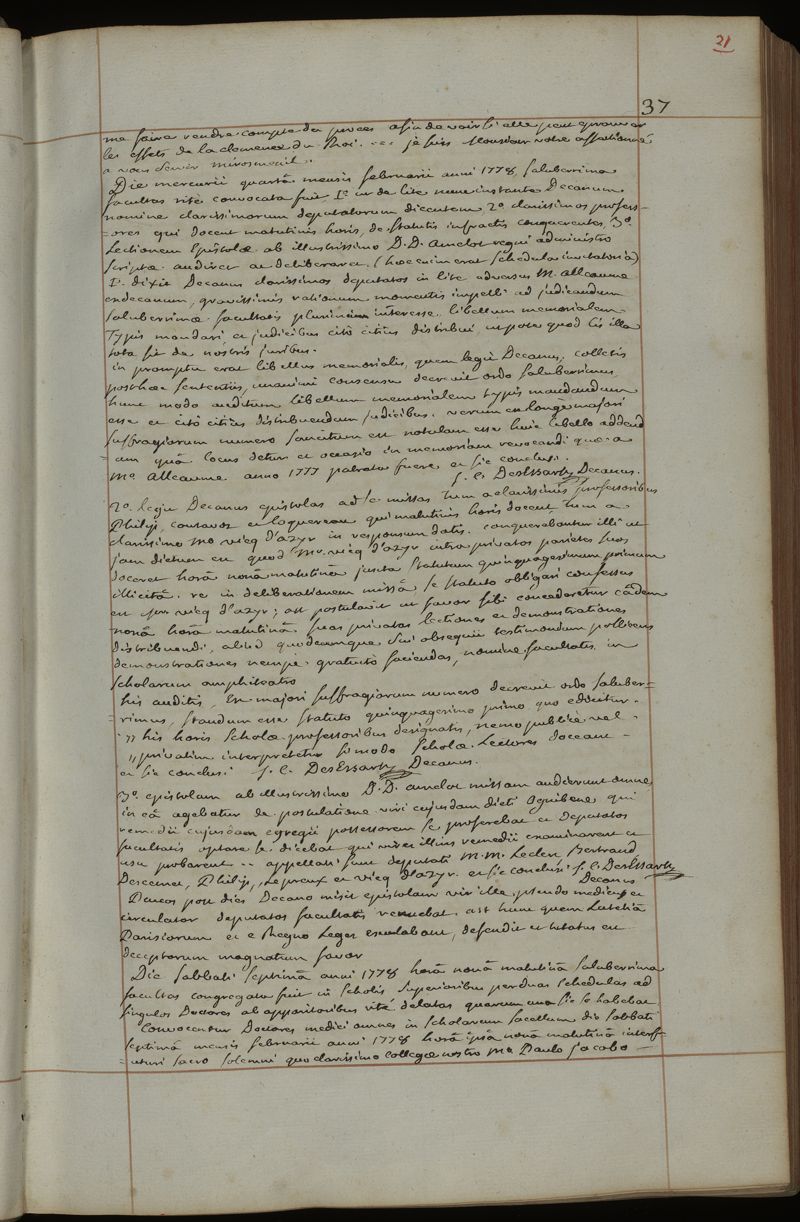 21
37
me faire rendre compte du procès afin de voir si elle peut éprouver
les effets de la clemence du Roi. -- je suis Monsieur votre affectionné
a vous servir miromenil.
Die mercurii quartâ mensis februarii anni 1778, saluberrima
facultas rite convocata fuit 1° ut de lite nunc instante Decanum
nomine clarissimorum deputatorum dicentem 2° clarissimos profess-
=ores qui docent matutinis horis, de statutis infractis conquerentes, 3°
Lectionem Epistolae ab illustrissimo D.D. amelot regni administro
scriptae audiret ac deliberaret (haec enim erat schedula invitatoria)
1° dixit Decanus clarissimos deputatos in lite adversus M. alleaume
exdecanum, gravissimis rationum momentis impelli ad judicandum
saluberrimae facultatis plurimum interesse libellum memorialem
Typis mandari et judicibus citò citius distribui, utpote quod lis illa
tota sit de nostris juribus.
in promptu erat libellus memorialis, quem legit Decanus; collectis
posthac sententiis, unanimi consensu decrevit ordo saluberrimus
hunc modo auditum libellum memorialem typis mandandum
esse et citò citius distribuendum judicibus. verum ex longè majori
suffragiorum numero sancitum est notulam esse huic libello addend
=am quâ locus detur et occasio in memoriam revocandi quae a
M° alleaume anno 1777 patrata fuere et sic conclusi.
J. C. DesEssartz Decanus.
2° legit Decanus epistolas ad se missas tum a clarissimis professoribus
Philip, coutavoz et Coquereau qui matutinis horis docent tum a
clarissimo M° vicq d'azyr in responsum datis. conquerebantur illi ut
jam dictum est quod M. vicq d'azyr intra privatos parietes suos
doceret horâ nonâ matutinâ juxta statutum quinquagesimum primum
illicitâ. re in deliberationem missâ se statuto obligari confessus
est M. vicq d'azyr; ast postulavit ut favor sibi concederetur eâdem
nonâ horâ matutinâ suas privatas lectiones et demonstrationes
distribuendi, aliud quodcumque sui obsequii testimonium pollicens
demonstrationes nempe gratuitò faciendas, nomine facultatis in
scholarum amphiteatro
his auditis, Ex majori suffragiorum numero decrevit ordo saluber-
-rimus, standum esse statuto quinquagesimo primo quo edicitur.
,, his horis scholae professoribus designatis, nemo publicè vel
,, privatim interpretetur si modo scholae Lectores doceant -
et sic conclusi. J. C. DesEssartz Decanus.
3° epistolam ab illustrissimo D.D. amelot missam audierunt omnes
in eâ agebatur de postulatione viri cujusdam dicti ognibene qui
remedii cujusdam egregii possessorem se proferebat et Deputatos
facultatis optare se dicebat qui vires illius remedii examinarent et
usu probarent -- appellati sunt deputati M.M. Leclerc, Bertrand
Descemet, Philip, Lepreux et vicq d'azyr. et sic conclusi J. C. DesEssartz
Decanus
Paucos post dies Decano misit epistolam vir ille, pseudo medicus et
circulator deputatos facultatis renuebat. ast hunc quem Lutetiâ
Parisiorum et e Regno Leges exulabant, defendit et tutatus est
deceptorum magnatum favor
Die sabbati septimâ anni 1778 horâ nonâ matutinâ saluberrima
facultas congregata fuit in scholis superioribus per duas schedulas ad
singulos Doctores ab apparitoribus rité delatas quarum una sic se habebat
Convocentur Doctores medici omnes in scholarum sacellum die sabbati
septimâ mensis februarii anni 1778 horâ ipsâ nonâ matutinâ interf-
=uturi sacro solemni quo clarissimo collegae nostro M° Paulo jacobo